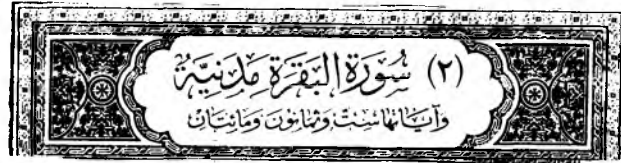 (٢) سُورَةُ البَقَرَةِ مَدَنِيَّة
وَآيَاتُهَا سِتٌّ وَثَمَانُونَ وَمِائَتَانِ